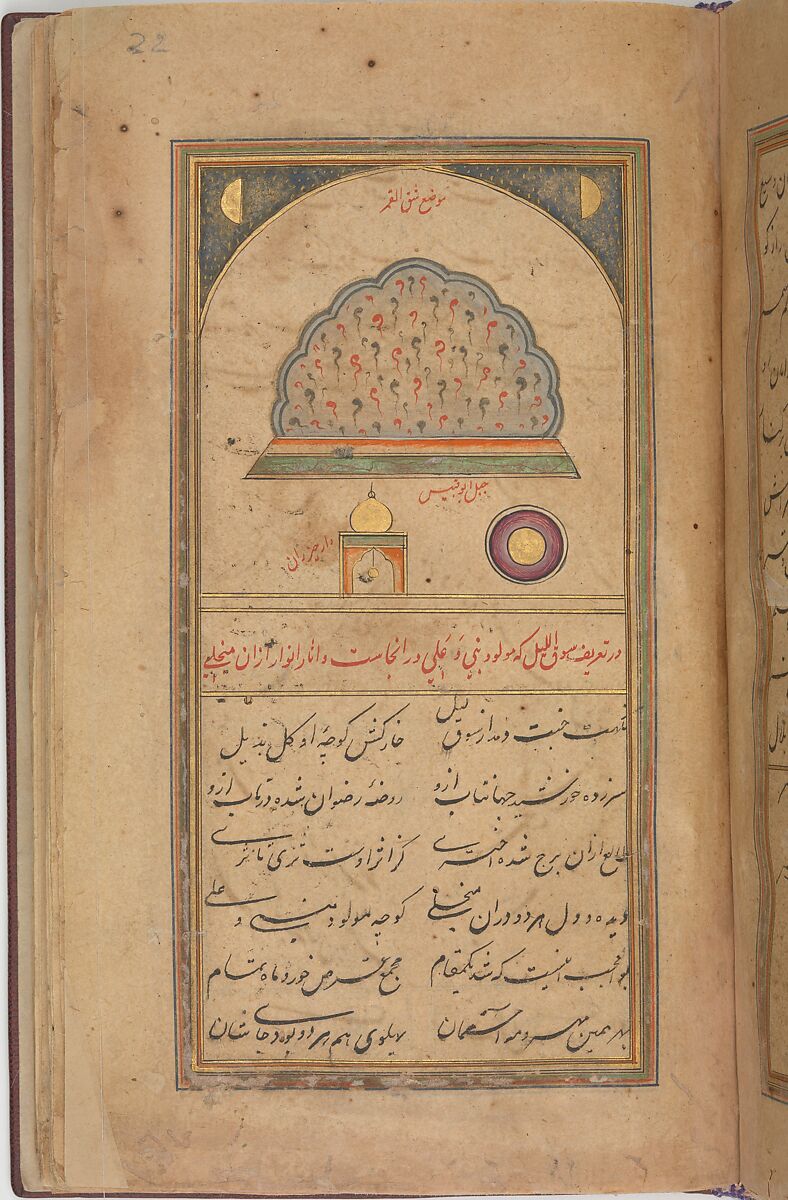 22
موضع شق القمر
جبل ابوقبیس
دار خیزران
در تعریف سوق اللیل که مولود نبی و علی در انجاست و انار انوار ازان منجلی
نکهت جنت دمد از سوق لیل خارکش کوچهٔ او کل بذیل
سرزده خورشید جهانتاب ازو روضهٔ رضوان شده درتاب ازو
طالع ازان برج شده اختری کز اثر اوست ثری تا ثری
دیده و دل هر دو دران منجلی کوچه مولود نبی و علی
بوالعجب اینست که شد یکمقام مجمع قرص خور و ماه تمام
بهر همین مهر و مه آسمان پهلوی هم هر دو بود جایشان